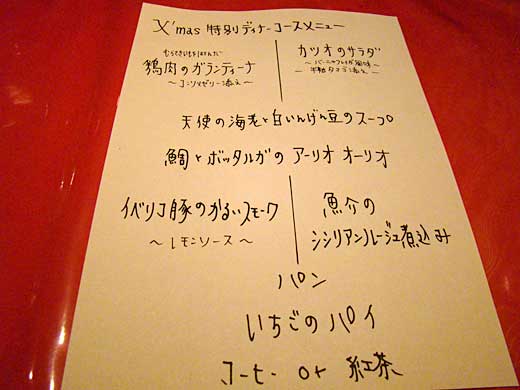 X'mas 特別ディナーコースメニュー
鶏肉のガランティーナ
〜コンソメゼリー添え〜
カツオのサラダ
〜バーニャフレイダ風味〜
半熟タマゴ添え〜
天使の海老と白いんげん豆のスープ
鯛とボッタルガの アーリオ オーリオ
イベリコ豚のかるいスモーク
〜レモンソース〜
魚介の
シシリアンルージュ煮込み
パン
いちごの パイ
コーヒー or 紅茶